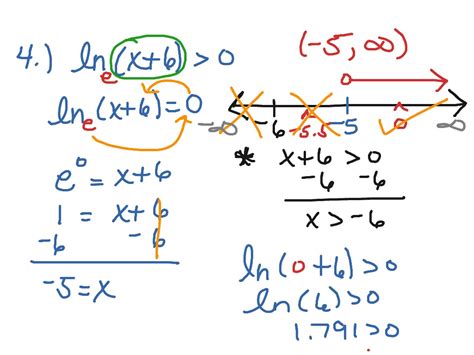 4.) lnₑ(x+6) > 0
lnₑ(x+6) = 0
e⁰ = x+6
1 = x+6
-6 -6
-5 = x
(-5, ∞)
-∞ -6 -5.5 -5 0 ∞
* x+6 > 0
-6 -6
x > -6
ln(0+6) > 0
ln(6) > 0
1.791 > 0